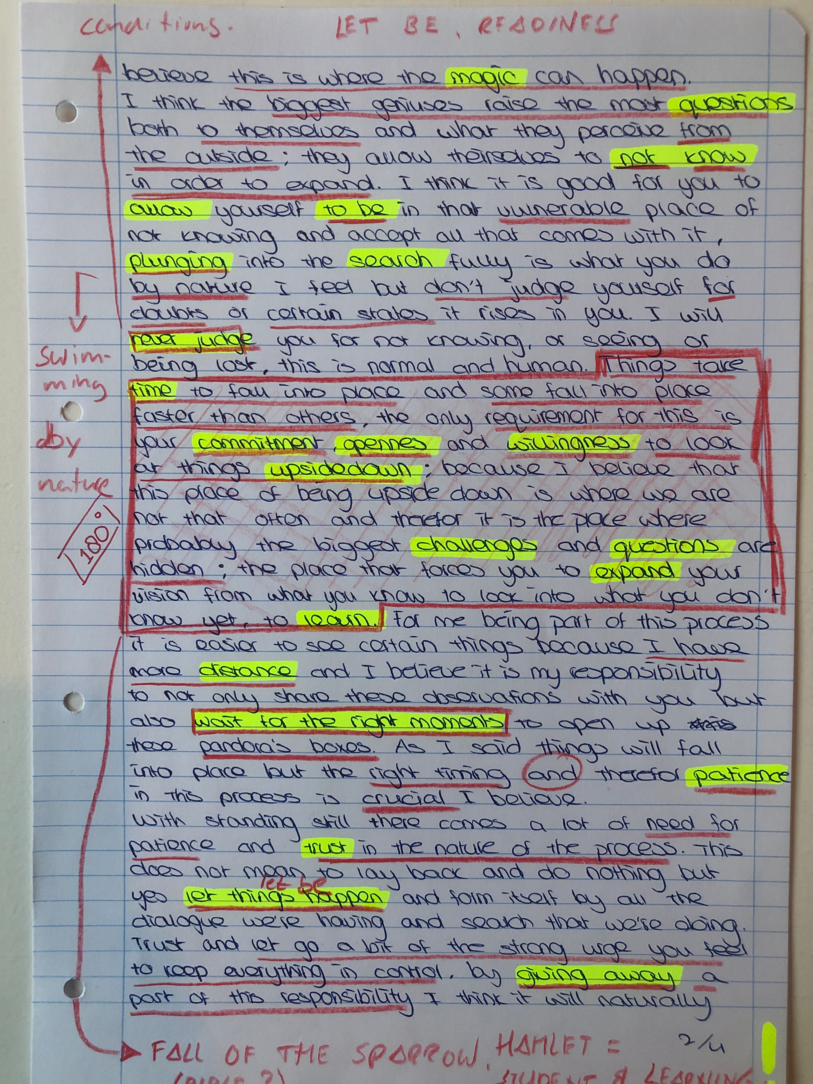 conditions. LET BE, READINESS
believe this is where the magic can happen.
I think the biggest geniuses raise the most questions
both to themselves and what they perceive from
the outside; they allow theirselves to not know
in order to expand. I think it is good for you to
allow yourself to be in that vulnerable place of
not knowing and accept all that comes with it,
plunging into the search fully is what you do
by nature I feel but don't judge yourself for
doubts or certain states it rises in you. I will
never judge you for not knowing, or seeing or
being lost, this is normal and human. Things take
time to fall into place and some fall into place
faster than others, the only requirement for this is
your commitment opennes and willingness to look
at things upsidedown; because I believe that
this place of being upside down is where we are
not that often and therefor it is the place where
probably the biggest challenges and questions are
hidden; the place that forces you to expand your
vision from what you know to look into what you don't
know yet, to learn. For me being part of this process
it is easier to see certain things because I have
more distance and I believe it is my responsibility
to not only share these observations with you but
also wait for the right moments to open up
these pandora's boxes. As I said things will fall
into place but the right timing and therefor patience
in this process is crucial I believe.
With standing still there comes a lot of need for
patience and trust in the nature of the process. This
does not mean to lay back and do nothing but
let be
yes let things happen and form itself by all the
dialogue we're having and search that we're doing.
Trust and let go a bit of the strong urge you feel
to keep everything in control, by giving away a
part of this responsibility I think it will naturally
2/4
swim-
ming
by
nature
180°
FALL OF THE SPARROW, HAMLET =
STUDENT & LEARNING